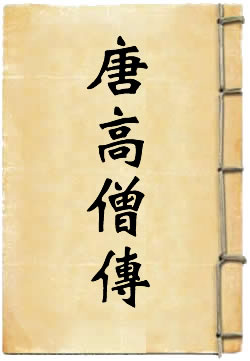 唐高僧傳